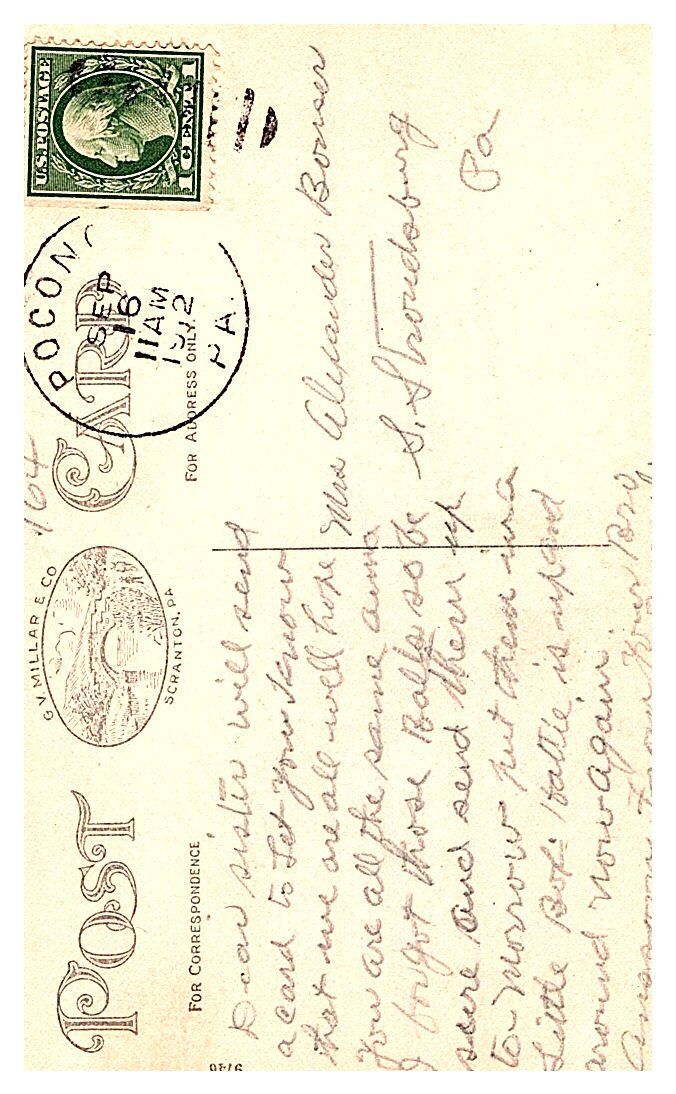 POST CARD
G.V. MILLAR & CO
SCRANTON, PA
164
FOR CORRESPONDENCE
FOR ADDRESS ONLY.
9746
U.S. POSTAGE
1 CENT 1
POCON
SEP
16
11 AM
1912
PA.
Dear sister will send
a card to Let you know
that we are all well hope
you are all the same
I forgot those Balls so be
sure and send them up
to-morrow put them in a
Little Box. Hattie is up and
around now again.
from your
Mrs Alexander Bonser
S. Stroudsburg
Pa